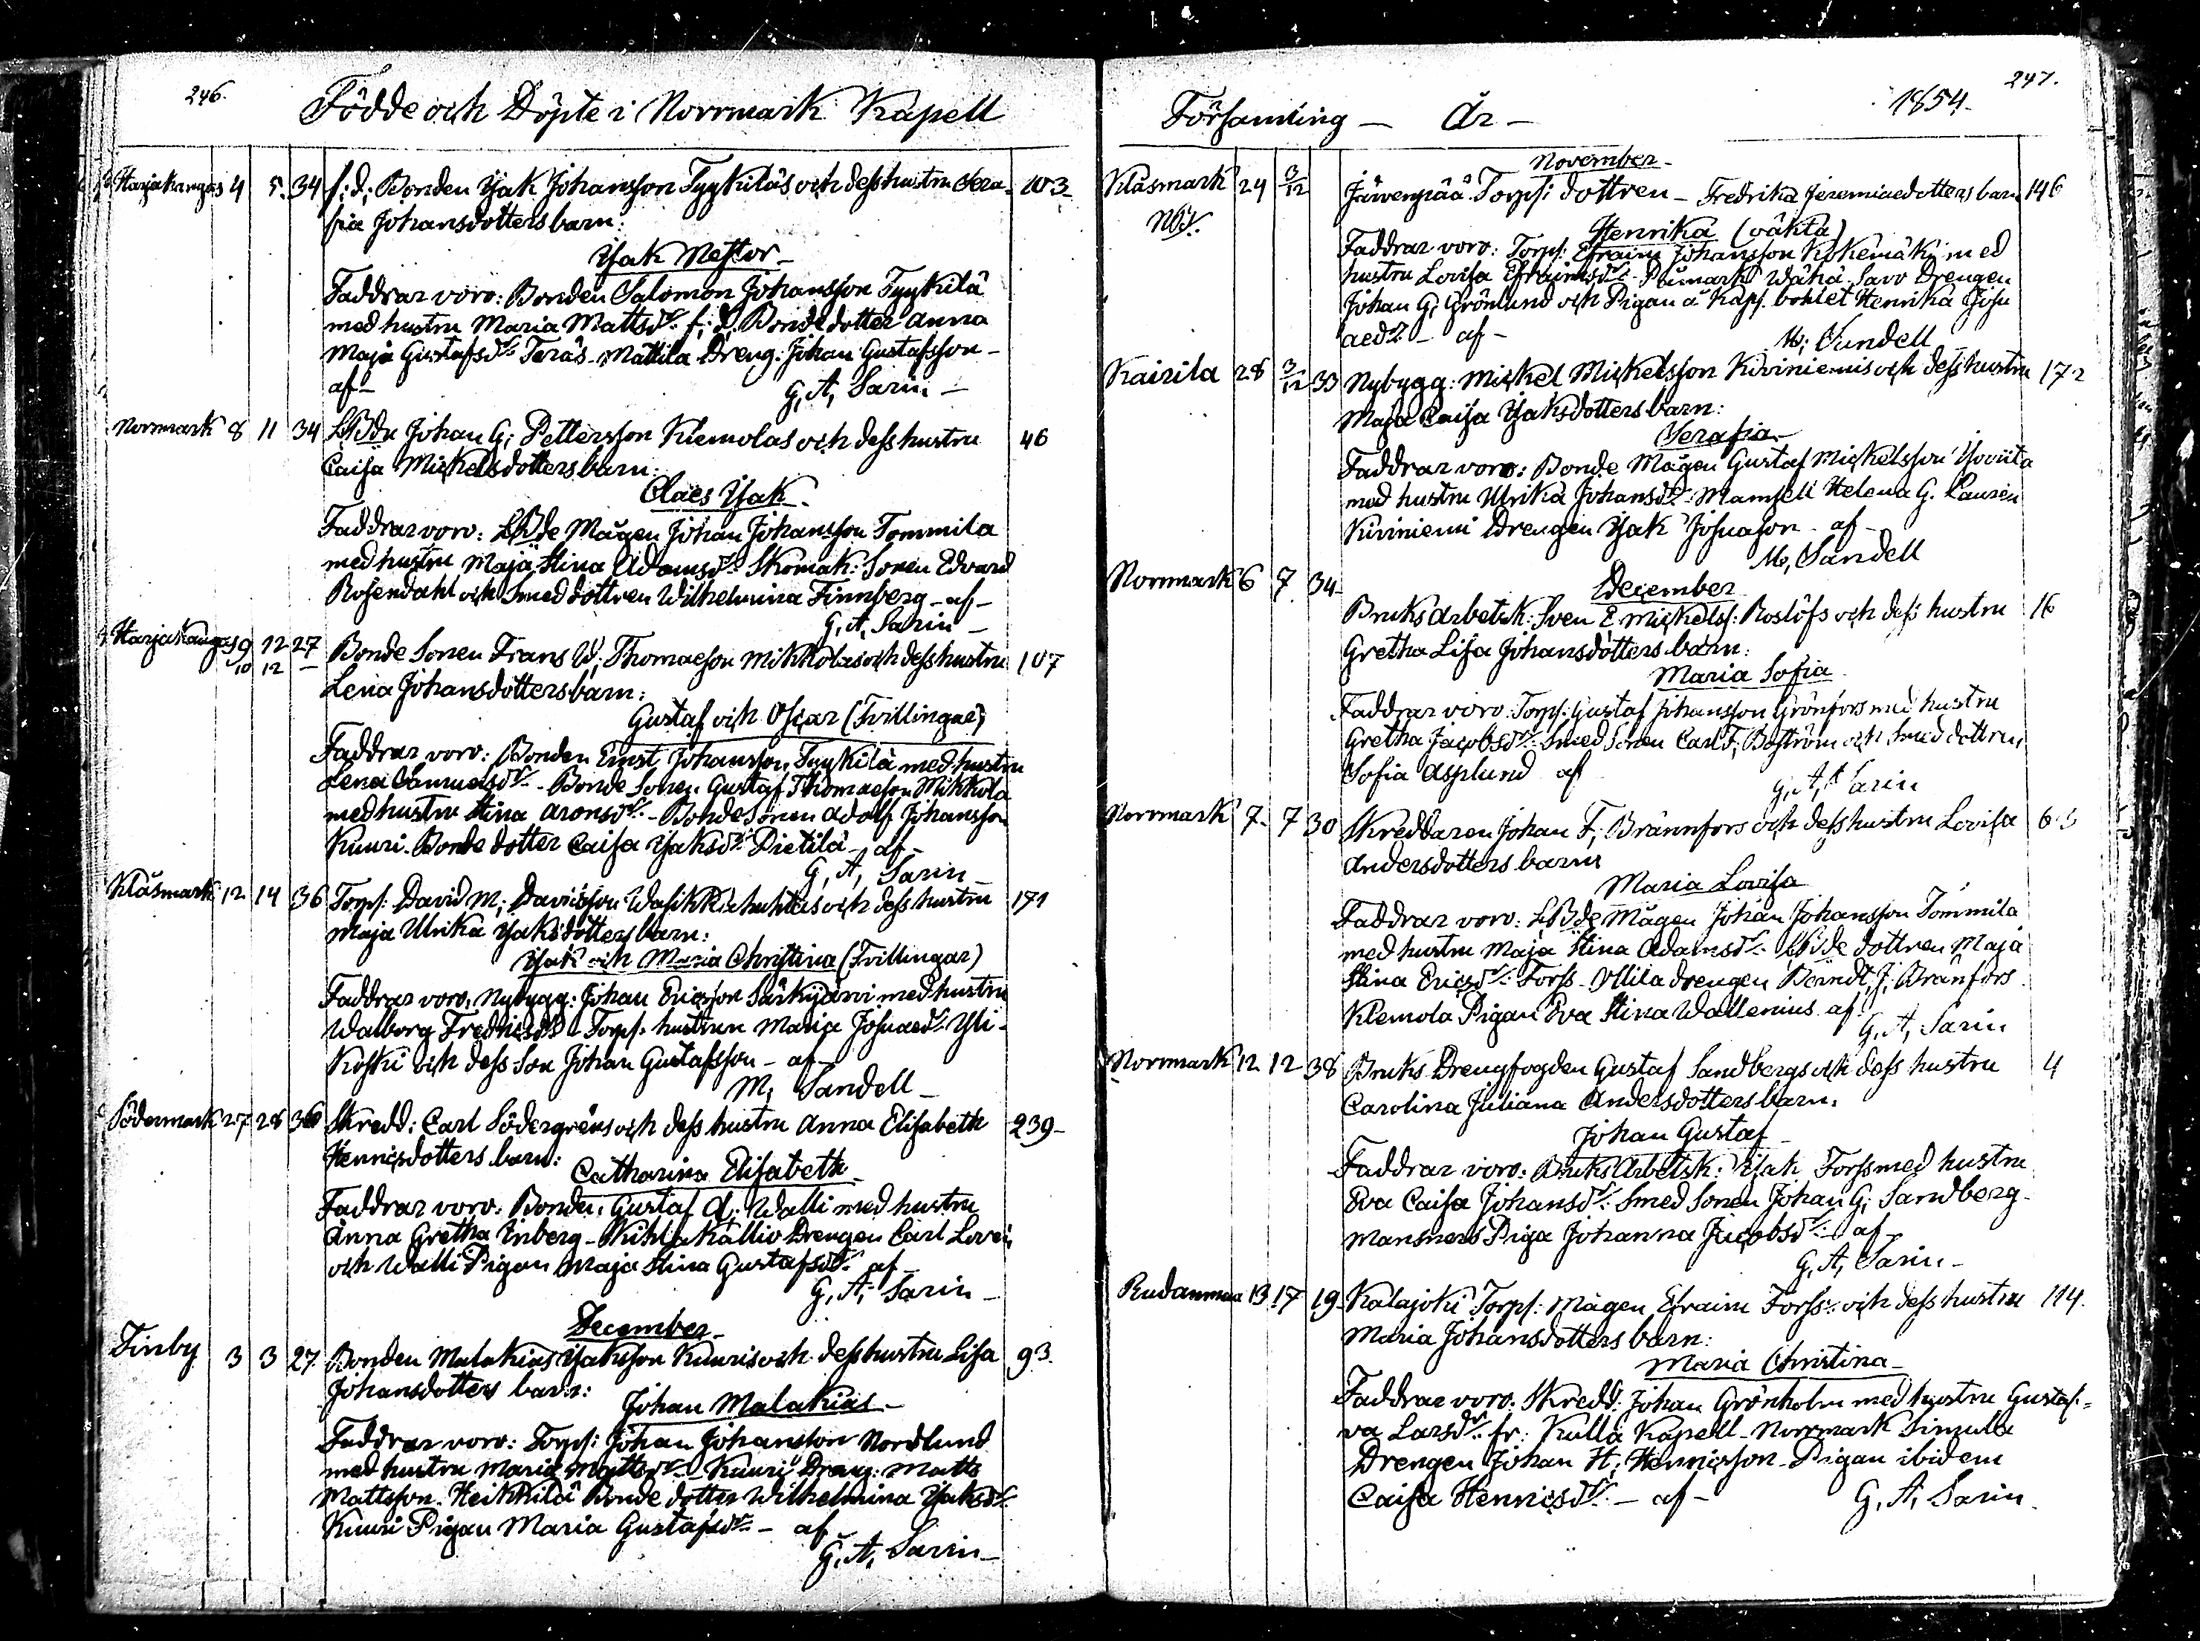 246.
Födde och Döpte i Norrmark Kapell
Harjakangas 4 5. 34 f: d: Bonden Isak Johansson Tyykiläs och dess hustru Sera- 103
fia Johansdotters barn:
Isak Nestor
Faddrar voro: Bonden Salomon Johansson Tyykilä
med hustru Maria Mattsdr. f: d. Bondedotter Anna
Maja Gustafsdr. Teräs-Mattila Dreng: Johan Gustafsson -
af - G. A. Sarin -
Norrmark 8 11 34 Johan G: Pettersson Klemolas och dess hustru 46
Caisa Mickelsdotters barn:
Claes Isak
Faddrar voro: Mågen Johan Johansson Tommila
med hustru Maja Stina Adamsdr. Skomak: Sonen Edvard
Rosendahl och Smeddottren Wilhelmina Finnberg - af -
G. A. Sarin -
Harjakangas 9 12 27 Bonde Sonen Frans W: Thomaeson Mikkolas och dess hustru 107
10 12
Lena Johansdotters barn:
Gustaf och Oscar (Tvillingar)
Faddrar voro: Bonden Ernst Johansson Tyykilä med hustru
Lena Samuelsdr. - Bonde Sonen Gustaf Thomaeson Mikkola
med hustru Stina Aronsdr. - Bonde Sonen Adolf Johansson
Kuuri. Bonde dotter Caisa Isaksdr. Pietilä - af -
G. A. Sarin -
Klåsmark 12 14 36 Torp: David M: Davidsson och dess hustru 171
Maja Ulrika Isaksdotters barn:
Isak och Maria Christina (Tvillingar)
Faddrar voro, Nybygg: Johan Ericsson Särkijärvi med hustru
Walborg Fredricsdr - Torp: hustrun Maria Josuaedr. Yli-
Koski och dess Son Johan Gustafsson - af -
M. Sandell -
Södermark 27 28 36 Skredd: Carl Södergréns och dess hustru Anna Elisabeth 239 -
Henricsdotters barn:
Catharina Elisabeth
Faddrar voro: Bonden Gustaf A: Walli med hustru
Anna Gretha Enberg - Drengen Carl Lovén
och Walli Pigan Maja Stina Gustafsdr. af -
G. A. Sarin -
December
Finby 3 3 27. Bonden Malakias Isaksson Kuuris och dess hustru Lisa 93.
Johansdotters barn:
Johan Malakias -
Faddrar voro: Torp: Johan Johansson Nordlund
med hustru Maria Mattsdr. - Kuuri Dreng: Matts
Mattsson. Heikkilä Bonde dotter Wilhelmina Isaksdr.
Kuuri Pigan Maria Gustafsdr. - af
G. A. Sarin -
247.
Församling - År - 1854.
November -
Klåsmark 24 3/12 Järvenpää Torp: dottren - Fredrika Jeremiaedotters barn 146
Henrika (oäkta)
Faddrar voro: Torp: Efraim Johansson Kokemäki med
hustru Lovisa Efraimsdr. Savo Drengen
Johan G: Grönlund och Pigan å Kapl. bohlet Henrika Josu
aedr. - af -
M. Sandell
Kairila 28 3/12 33 Nybygg: Mickel Mickelsson Kiviniemis och dess hustru 172
Maja Caisa Isaksdotters barn:
Serafia
Faddrar voro: Bonde Mågen Gustaf Mickelsson
med hustru Ulrika Johansdr: Mamsell Helena G. Laurén
Kiviniemi Drengen Isak Josuason - af -
M. Sandell
December
Norrmark 6 7 34 Bruks Arbetsk: Sven E. Mickelss: Roslöfs och dess hustru 16
Gretha Lisa Johansdotters barn:
Maria Sofia
Faddrar voro: Torp: Gustaf Johansson Grönfors med hustru
Gretha Jacobsdr. Smed Sonen Carl F. Boström och Smed dottren
Sofia Asplund af
G. A. Sarin
Norrmark 7. 7 30 Skreddaren Johan F: Brännfors och dess hustru Lovisa 65
Andersdotters barn
Maria Lovisa
Faddrar voro: Mågen Johan Johansson Tommila
med hustru Maja Stina Adamsdr. dottren Maja
Stina Ericsdr. Forss - Ollila drengen Berndt J. Bränfors
Klemola Pigan Eva Stina Wallenius af.
G. A. Sarin
Norrmark 12 12 38 Bruks Drengfogden Gustaf Sandbergs och dess hustru 4
Carolina Juliana Andersdotters barn.
Johan Gustaf -
Faddrar voro: Bruks Arbetsk: Isak Forss med hustru
Eva Caisa Johansdr. Smed Sonen Johan G. Sandberg -
Mansners Piga Johanna Jacobsdr. - af -
G. A. Sarin -
Rudanmaa 13 17 19 Kalajoki Torp: Mågen Efraim Forss: och dess hustru 114.
Maria Johansdotters barn:
Maria Christina -
Faddrar voro: Skredd: Johan Grönholm med hustru Gustaf-
va Larsdr. fr: Kulla Kapell - Norrmark Simula
Drengen Johan H: Henricsson - Pigan ibidem
Caisa Henricsdr. - af - G. A. Sarin